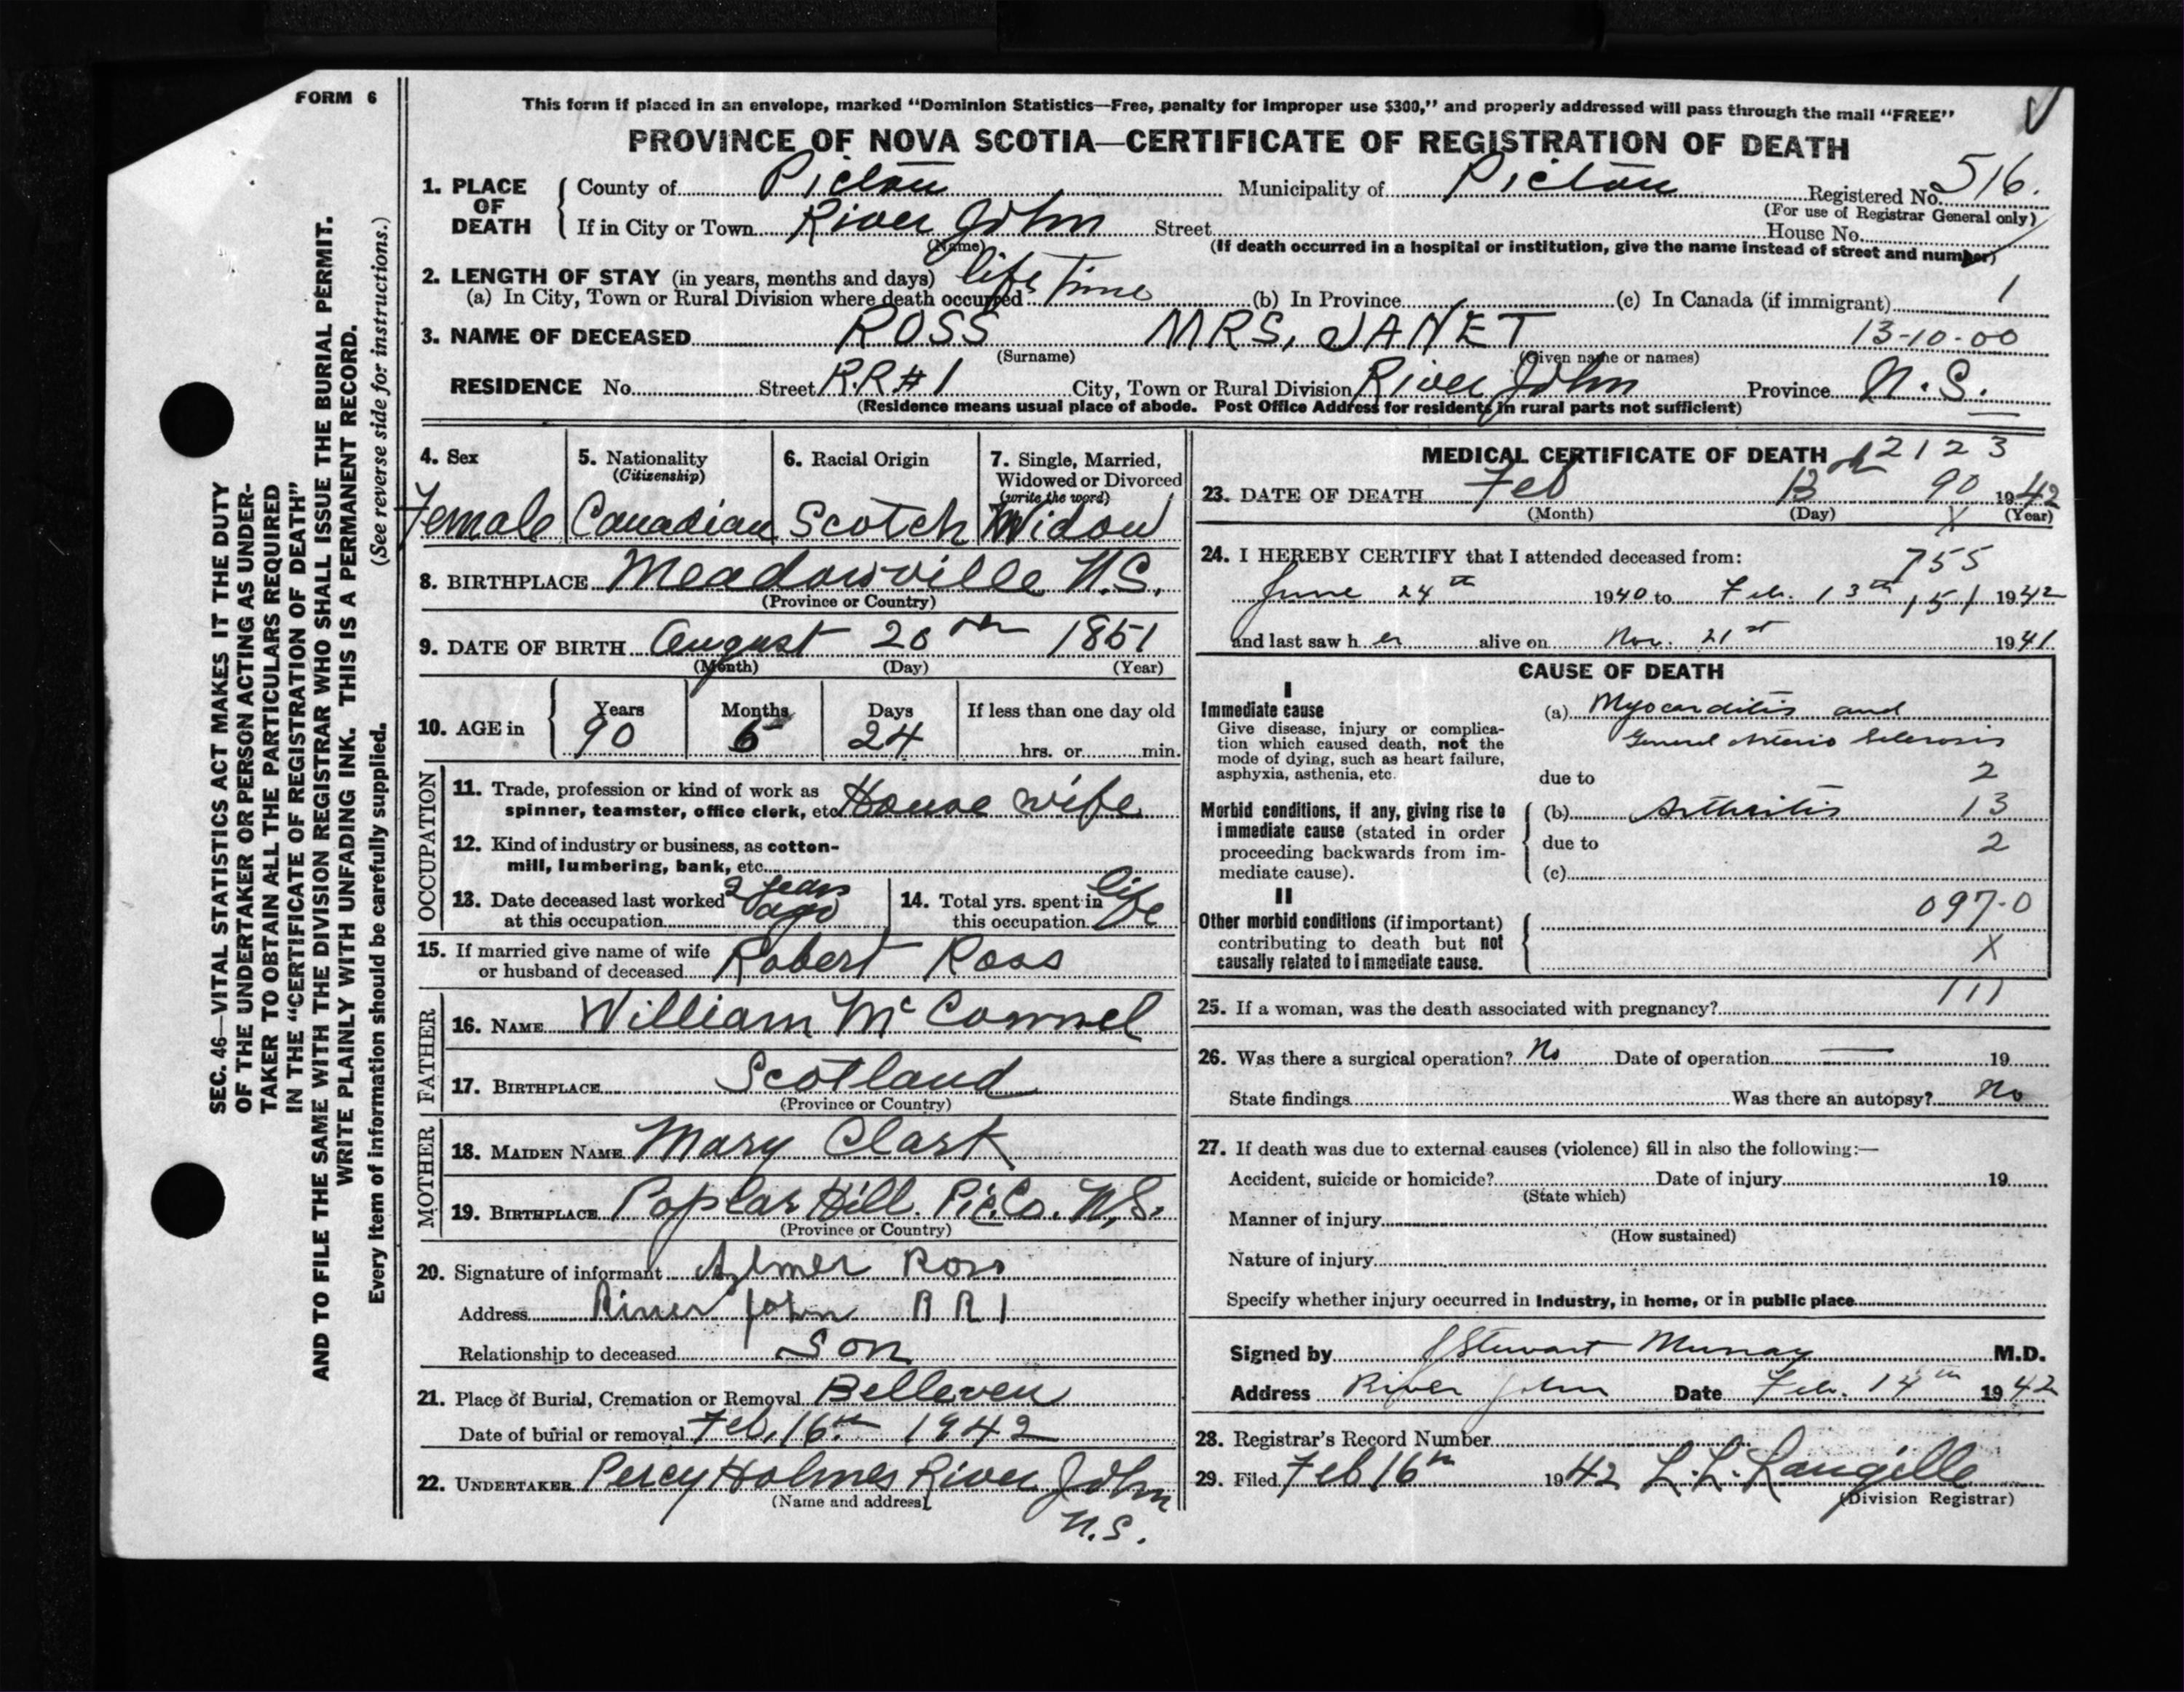 FORM 6
This form if placed in an envelope, marked "Dominion Statistics—Free, penalty for improper use $300," and properly addressed will pass through the mail "FREE"
PROVINCE OF NOVA SCOTIA—CERTIFICATE OF REGISTRATION OF DEATH
1. PLACE OF DEATH County of Pictou Municipality of Pictou Registered No. 516.
(For use of Registrar General only)
If in City or Town River John Street House No.
(Name) (If death occurred in a hospital or institution, give the name instead of street and number)
2. LENGTH OF STAY (in years, months and days)
(a) In City, Town or Rural Division where death occurred life Time (b) In Province (c) In Canada (if immigrant) 1
3. NAME OF DECEASED ROSS MRS. JANET 13-10-00
(Surname) (Given name or names)
RESIDENCE No. Street R.R#1 City, Town or Rural Division River John Province N.S.
(Residence means usual place of abode. Post Office Address for residents in rural parts not sufficient)
4. Sex Female
5. Nationality (Citizenship) Canadian
6. Racial Origin Scotch
7. Single, Married, Widowed or Divorced (write the word) Widow
8. BIRTHPLACE Meadowville N.S.
(Province or Country)
9. DATE OF BIRTH August 20th 1851
(Month) (Day) (Year)
10. AGE in Years 90 Months 6 Days 24 If less than one day old
hrs. or min.
OCCUPATION
11. Trade, profession or kind of work as
spinner, teamster, office clerk, etc. House wife
12. Kind of industry or business, as cotton-
mill, lumbering, bank, etc.
13. Date deceased last worked at this occupation 2 years ago
14. Total yrs. spent in this occupation life
15. If married give name of wife
or husband of deceased Robert Ross
FATHER
16. NAME William McConnel
17. BIRTHPLACE Scotland
(Province or Country)
MOTHER
18. MAIDEN NAME Mary Clark
19. BIRTHPLACE Poplar Hill. Pic. Co. N.S.
(Province or Country)
20. Signature of informant Aylmer Ross
Address River John R R 1
Relationship to deceased Son
21. Place of Burial, Cremation or Removal Belleveu
Date of burial or removal Feb. 16th 1942
22. UNDERTAKER Percy Holmes River John
(Name and address)
N.S.
MEDICAL CERTIFICATE OF DEATH 2123
23. DATE OF DEATH Feb 13th 90 1942
(Month) (Day) X (Year)
24. I HEREBY CERTIFY that I attended deceased from: 755
June 24th 1940 to Feb. 13th 151 1942
and last saw her alive on Nov. 21st 1941
CAUSE OF DEATH
I
Immediate cause
Give disease, injury or complica-
tion which caused death, not the
mode of dying, such as heart failure,
asphyxia, asthenia, etc.
(a) Myocarditis and
General Arterio Sclerosis
due to 2
Morbid conditions, if any, giving rise to
immediate cause (stated in order
proceeding backwards from im-
mediate cause).
(b) Arthritis 13
due to 2
(c)
II
Other morbid conditions (if important)
contributing to death but not
causally related to immediate cause.
097-0
X
25. If a woman, was the death associated with pregnancy? 111
26. Was there a surgical operation? No Date of operation — 19
State findings Was there an autopsy? No
27. If death was due to external causes (violence) fill in also the following:—
Accident, suicide or homicide? Date of injury 19
(State which)
Manner of injury
(How sustained)
Nature of injury
Specify whether injury occurred in industry, in home, or in public place
Signed by J Stewart Murray M.D.
Address River John Date Feb. 14th 1942
28. Registrar's Record Number
29. Filed Feb 16th 1942 L. L. Langille
(Division Registrar)
SEC. 46—VITAL STATISTICS ACT MAKES IT THE DUTY
OF THE UNDERTAKER OR PERSON ACTING AS UNDER-
TAKER TO OBTAIN ALL THE PARTICULARS REQUIRED
IN THE "CERTIFICATE OF REGISTRATION OF DEATH"
AND TO FILE THE SAME WITH THE DIVISION REGISTRAR WHO SHALL ISSUE THE BURIAL PERMIT.
WRITE PLAINLY WITH UNFADING INK. THIS IS A PERMANENT RECORD.
Every item of information should be carefully supplied. (See reverse side for instructions.)